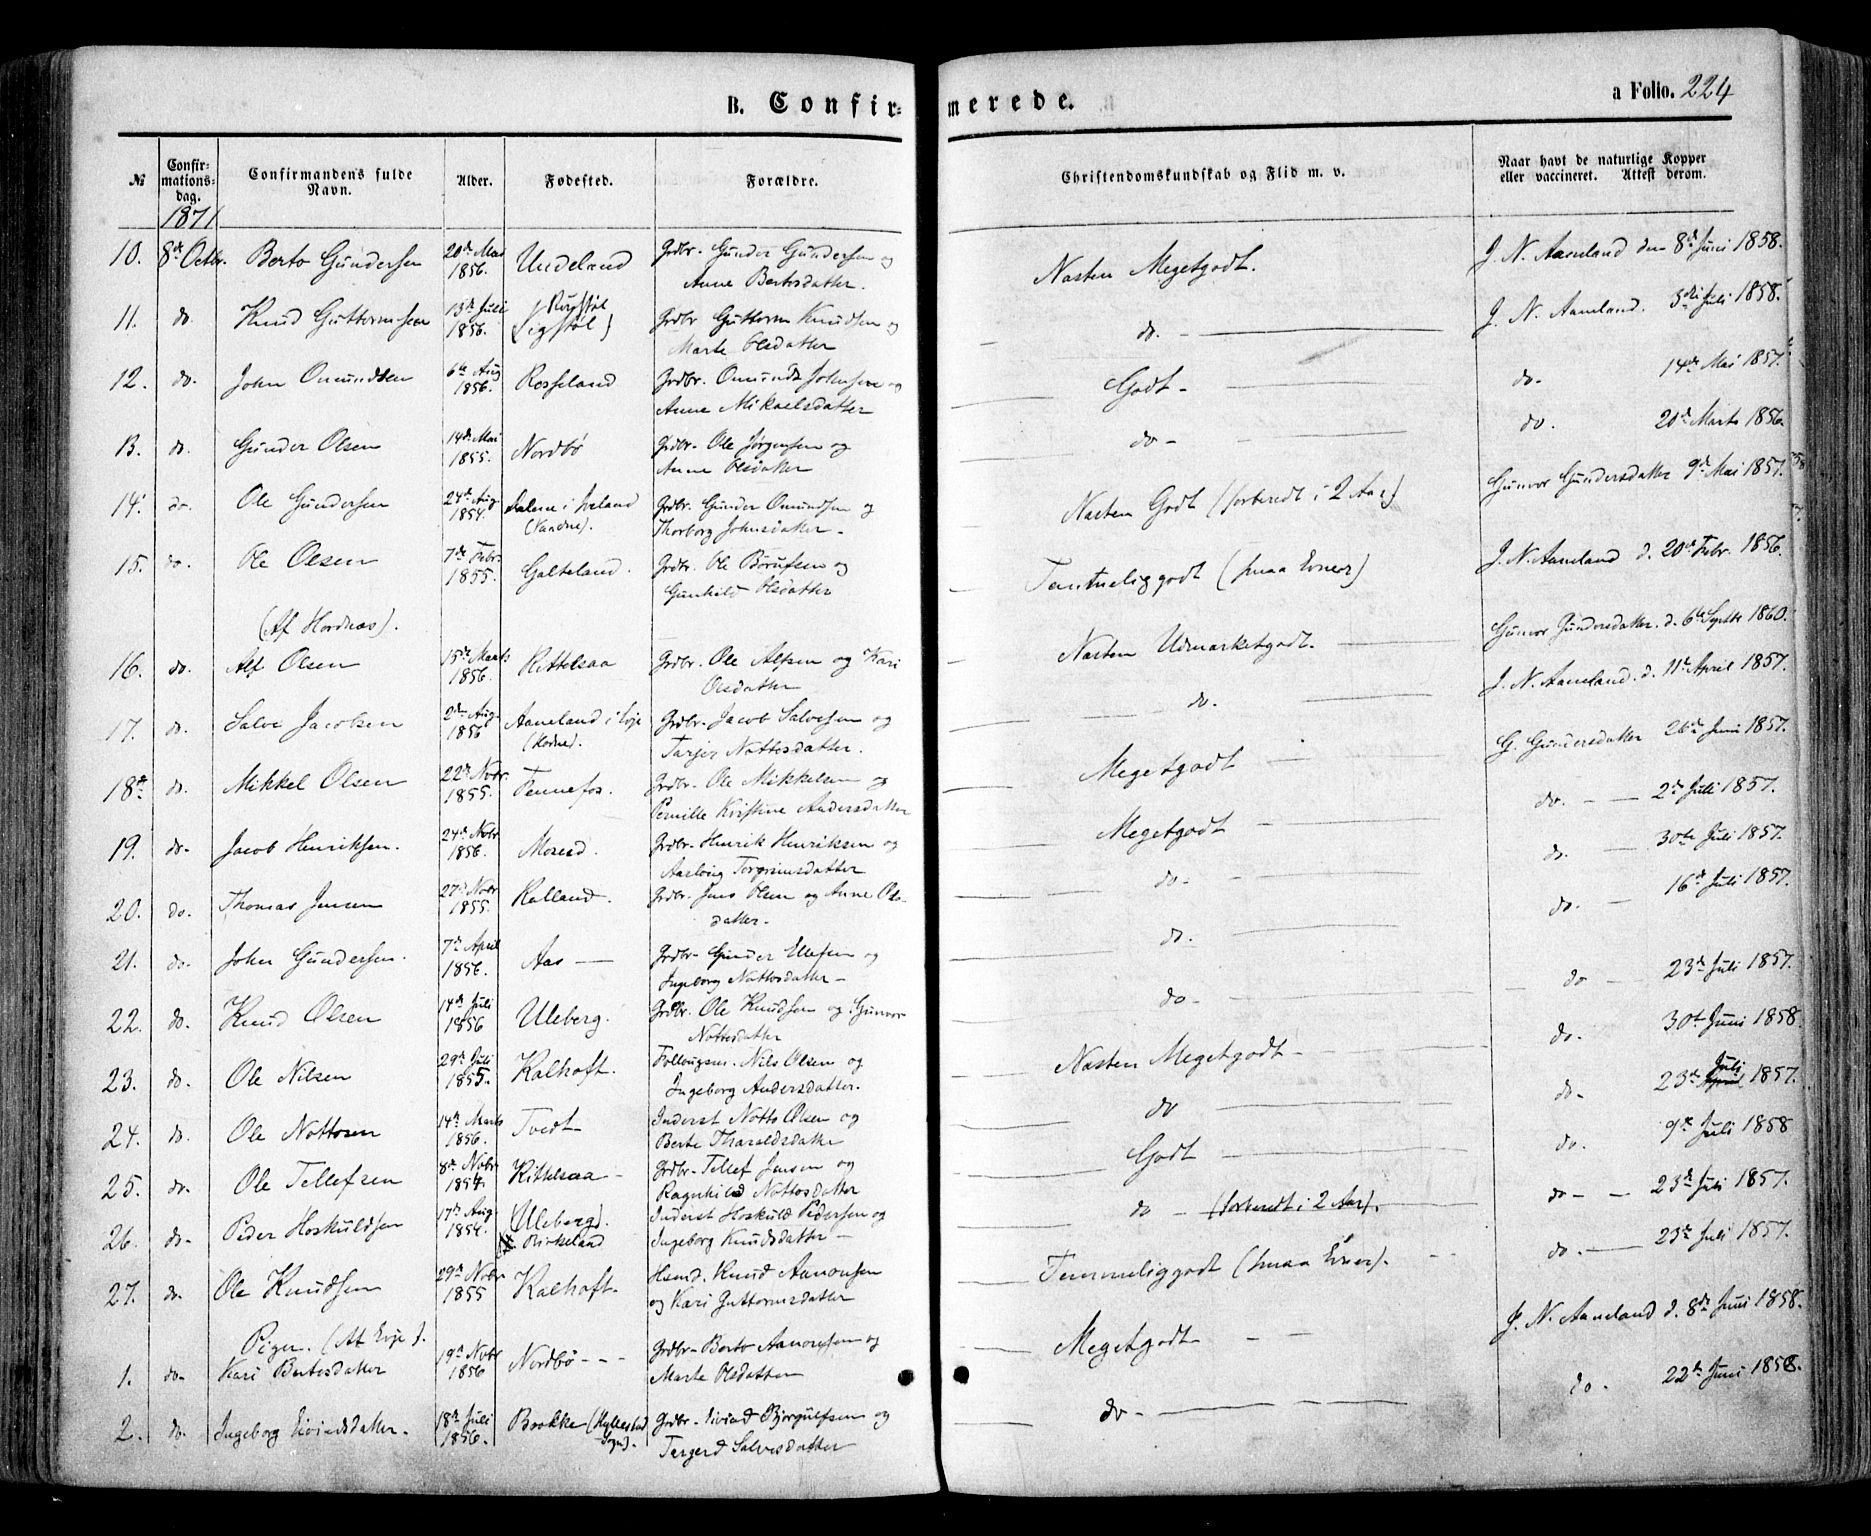 B. Confir=
merede.
a Folio. 224
№
Confir=
mations=
dag.
Confirmandens fulde
Navn.
Alder.
Fødested.
Forældre.
Christendomskundskab og Flid m. v.
Naar havt de naturlige Kopper
eller vaccineret. Attest derom.
1871
10. 8de Octbr. Berto Gundersen 20de Mai 1856. Undeland Grdbr. Gunder Gundersen og Anne Bertosdatter. Nasten Megetgodt. J. N. Aaneland den 8de Juni 1858.
11. do. Knud Guttormsen 13de Juli 1856. Grdbr Guttorm Knudsen og Marte Olsdatter do. J. N. Aaneland. Juli 1858.
12. do. John Omundsen 6te Aug 1856. Rosseland Grdbr. Omund Johnsen og Anne Mikaelsdatter Godt - do- 14de Mai 1857.
13. do. Gunder Olsen 14de Mai 1855. Nordbø Grdbr. Ole Jørgensen og Anne Olsdatter do- do. 20de Marts 1856.
14. do. Ole Gundersen 24de Aug 1854. Dalene i Iveland Grdbr. Gunder Omundsen og Thorborg Johnsdatter - Nasten Godt (forberedt i 2 Aar) Gunvor Gundersdatter 9de Mai 1857.
15. do. Ole Olsen 7de Febr. 1855. Galteland. Grdbr. Ole Børufsen og Gunhild Olsdatter Temmeliggodt (smaa Evner) J. N. Aaneland d. 20de Febr. 1856.
(Af Hordnæs).
16. do. Alf Olsen 15de Marts 1856. Kittelsaa Grdbr. Ole Alfsen og Kari Olsdatter Nasten Udmarketgodt. Gunvor Gundersdatter. d. 6te Septbr 1860.
17. do. Salve Jacobsen 2den Aug. 1856 Aaneland i Evje Grdbr. Jacob Salvesen og Tarjer Nottosdatter. do. J. N. Aaneland. d. 11te April 1857.
18de do. Mikkel Olsen 22de Novbr. 1855. Fennefos. Grdbr. Ole Mikkelsen og Pernille Kristine Andersdatter Megetgodt G. Gundersdatter 26de Juni 1857.
19. do. Jacob Henriksen. 24de Novbr 1856. Moseid. Grdbr. Henrik Henriksen og Aaslaug Torgrimsdatter Megetgodt do. - 2de Juli 1857.
20. do. Thomas Jensen 27de Novbr 1855. Kalland. Grdbr. Jens Olsen og Anne Olsdatter. do- do. 30te Juli 1857.
21. do. John Gundersen. 7de April 1856. Aas Grdbr. Gunder Ellefsen og Ingeborg Nottosdatter - do. do. - 16de Juli 1857.
22. do. Knud Olsen 14de Juli 1856 Uleberg. Grdbr. Ole Knudsen og Gunvor Nottosdatter do- do - 23de Juli 1857.
23. do. Ole Nilsen 29de Juli 1855. Kalhoft. Nils Olsen og Ingeborg Andersdatter. Nasten Megetgodt - do. 30te Juni 1858
24. do. Ole Nottosen 14de Marts 1856. Tvedt Inderst Notto Olsen og Berte Tharaldsdatter do do- 23de Juli 1857.
25. do. Ole Tellefsen 8de Novbr 1854. Kittelsaa - Grdbr. Tellef Jensen og Ragnhild Nottosdatter Godt do. 9de Juli 1858
26. do. Peder Hoskuldsen 17de Aug 1854. (Uleberg). Birkeland Inderst Hoskuld Pedersen og Ingeborg Knudsdatter - do - (forberedt i 2 Aar). do - 23de Juli 1857.
27. do. Ole Knudsen 29de Novbr 1855 Kalhoft. Husmd. Knud Aanonsen og Kari Guttormsdatter Temmeliggodt (smaa Evner). do. 23de Juli 1857.
Piger. (Af Evje).
1. do. Kari Bertosdatter 19de Novbr 1856 Nordbø - - - Grdbr - Berto Aanonsen og Marte Olsdatter Megetgodt J. N. Aaneland d. 8de Juni 1858.
2. do. Ingeborg Eivindsdatter. 18de Juli 1856. Brokke (Hyllestad Sogn). Grdbr. Eivind Bjorgulfsen og Tergerd Salvesdatter do - do. 22de Juni 1858.